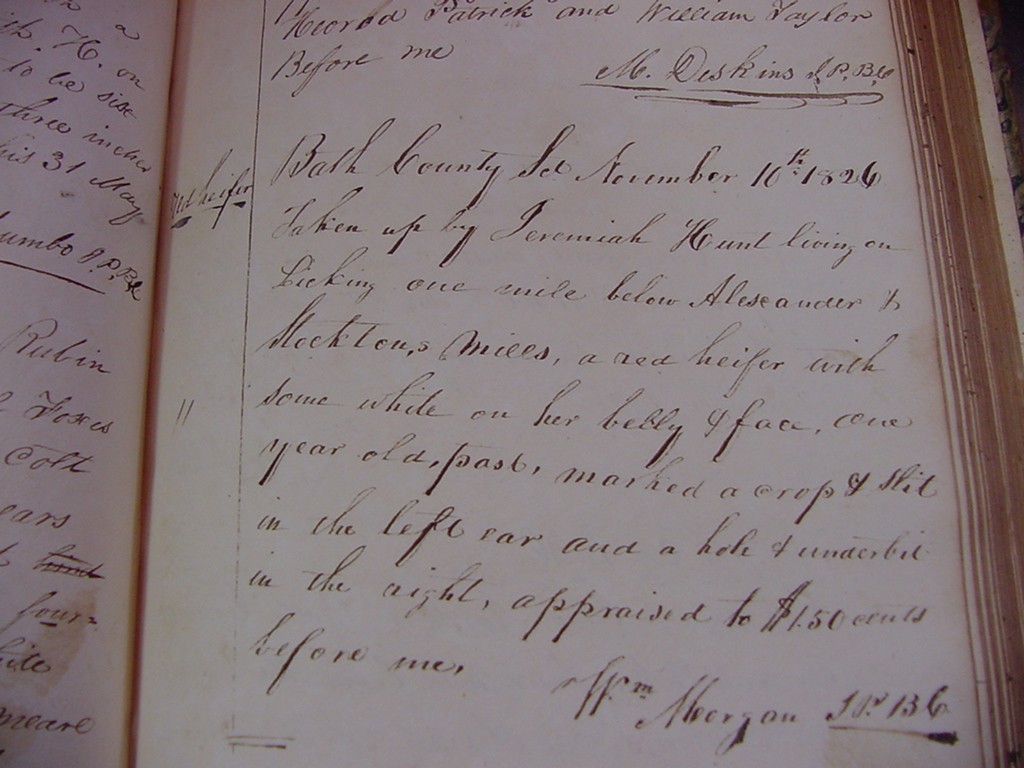 n a
th. H. on
to be six
three inches
his 31 May
umbo J.P.B.C
Rubin
Foxes
Colt
ears
four=
meare
Patrick and William Taylor
Before me
M. Deskins J.P.B.C
heifer
Bath County Sct November 10th 1826
Taken up by Jeremiah Hunt living on
Licking one mile below Alexander &
Stockton,s Mills, a red heifer with
some white on her belly & face, one
year old, past, marked a crop & slit
in the left ear and a hole & underbit
in the right, appraised to $1.50 cents
before me,
Wm Morgan J.P. B C